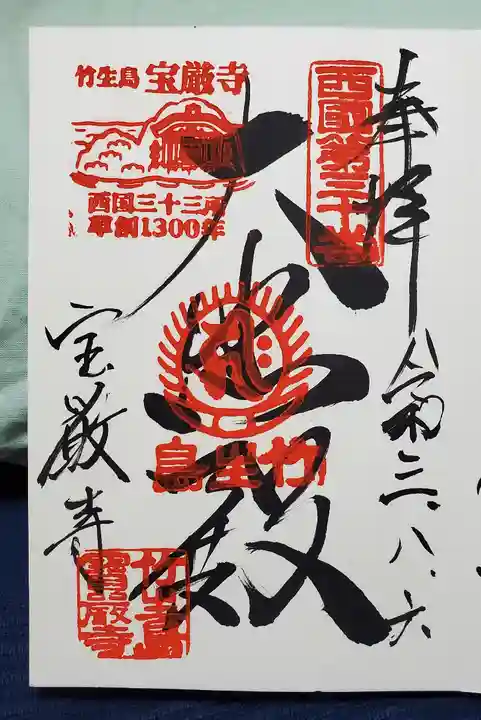 奉拝
令和三、八、六
西國第三十番
大悲殿
竹生島
竹生島 宝厳寺
西国三十三所
草創1300年
宝厳寺
竹生島
寶厳寺